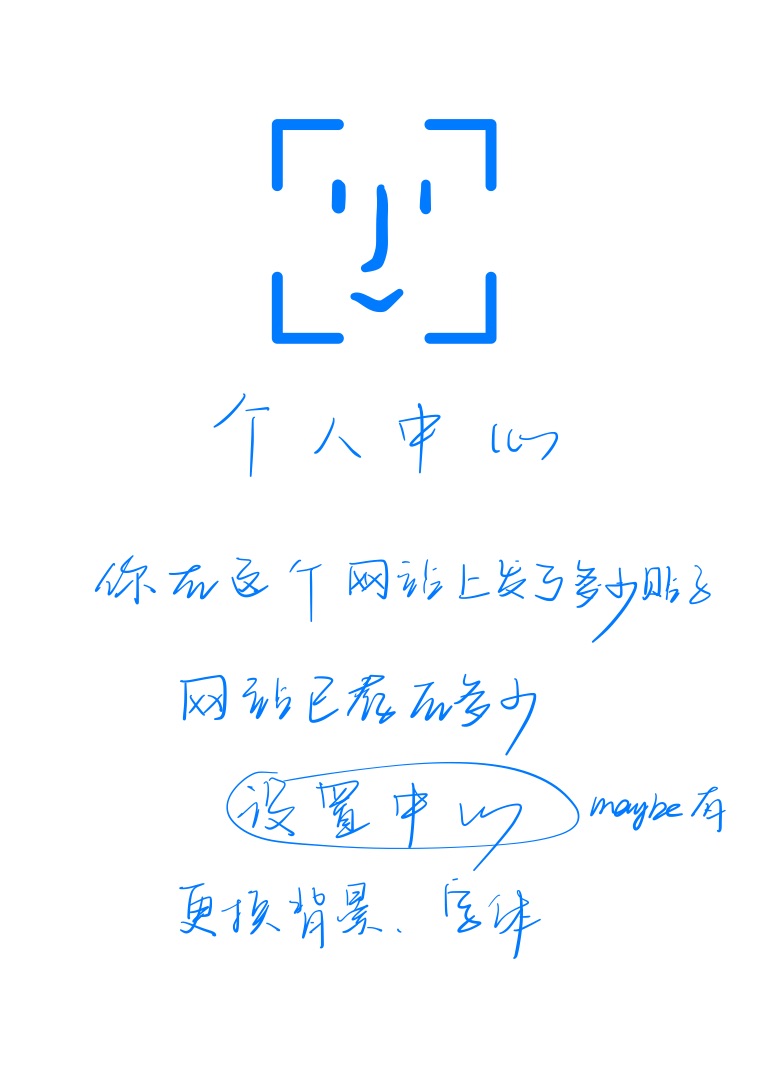 个人中心
你在这个网站上发了多少贴子
网站已存在多少
设置中心 maybe有
更换背景、字体